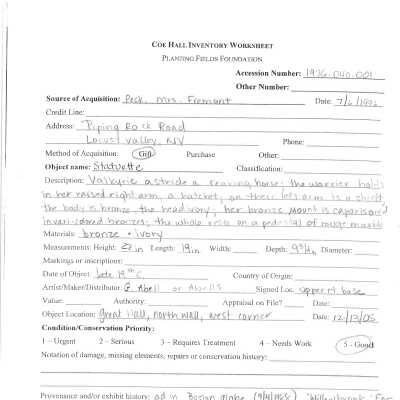 COE HALL INVENTORY WORKSHEET
PLANTING FIELDS FOUNDATION
Accession Number: 1976.040.001
Other Number:
Source of Acquisition: Peck, Mrs. Fremont Date: 7/6/1976
Credit Line:
Address: Piping Rock Road
Locust Valley, NY Phone:
Method of Acquisition: Gift Purchase Other:
Object name: Statuette Classification:
Description: Valkyrie astride a rearing horse; the warrior holds
in her raised right arm, a hatchet, on their left arm is a shield
the body is bronze, the head ivory; her bronze mount is caparisoned
in vari-colored bronzes; the whole rests on a pedestal of rouge marble
Materials bronze + ivory
Measurements: Height: in Length: 19in Width: Depth: Diameter:
Markings or inscriptions:
Date of Object late 19th C. Country of Origin:
Artist/Maker/Distributor: G. Abell or Abells Signed Loc. upper rt base
Value: Authority: Appraisal on File? Date:
Object Location: Great Hall, north wall, west corner Date: 12/13/05
Condition/Conservation Priority:
1 – Urgent 2 - Serious 3 - Requires Treatment 4 – Needs Work 5 - Good
Notation of damage, missing elements, repairs or conservation history:
Provenance and/or exhibit history: ad in Boston Globe